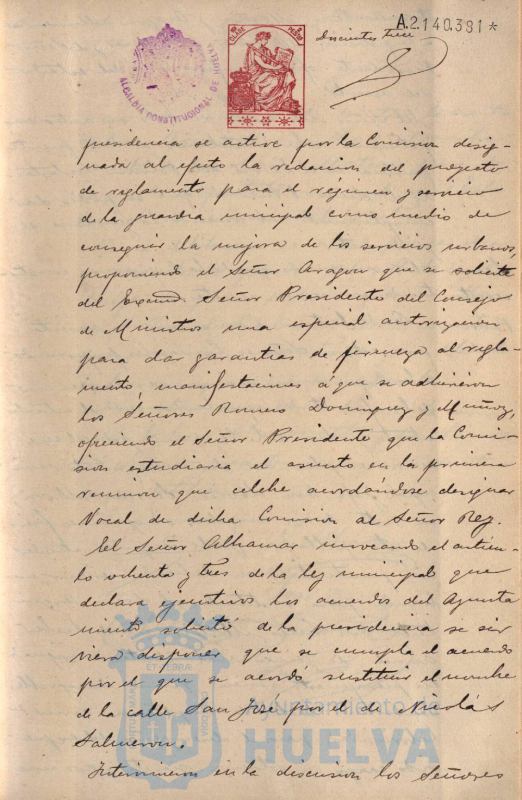 A.2140.381*
Doscientos trece
ALCALDIA CONSTITUCIONAL DE HUELVA
presidencia se active por la Comision desig-
nada al efecto la redaccion del proyecto
de reglamento para el régimen y servicio
de la guardia municipal como medio de
conseguir la mejora de los servicios urbanos,
proponiendo el Señor Aragon que se solicite
del Excmo. Señor Presidente del Consejo
de Ministros una especial autorizacion
para dar garantias de firmeza al regla-
mento, manifestaciones á que se adhirieron
los Señores Romero Dominguez y Muñoz,
ofreciendo el Señor Presidente que la Comi-
sion estudiaria el asunto en la primera
reunion que celebre acordándose designar
Vocal de dicha Comision al Señor Rey.
El Señor Alhamar invocando el articu-
lo ochenta y tres de la ley municipal que
declara ejecutivos los acuerdos del Ayunta
miento solicitó de la presidencia se sir
viera disponer que se cumpla el acuerdo
por el que se acordó sustituir el nombre
de la calle San José por el de Nicolás
Salmeron.
Intervinieron en la discusion los Señores
Ayuntamiento de
HUELVA